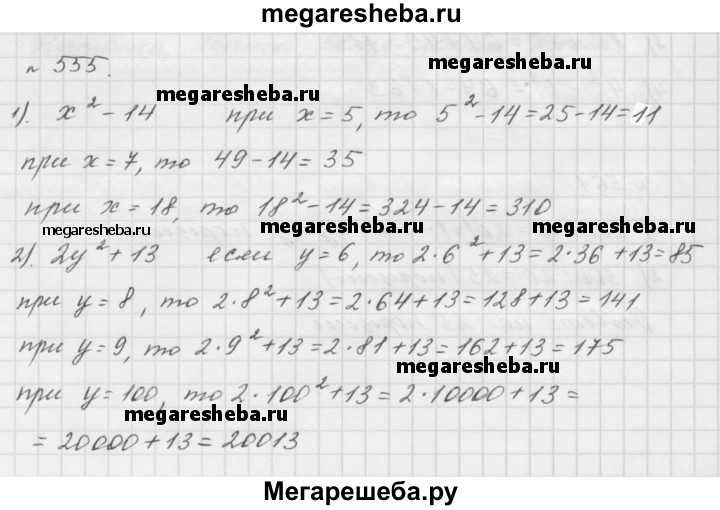 megaresheba.ru
n 555. megaresheba.ru
megaresheba.ru
1). x² - 14 при x = 5, то 5² - 14 = 25 - 14 = 11
при x = 7, то 49 - 14 = 35
при x = 18, то 18² - 14 = 324 - 14 = 310
megaresheba.ru megaresheba.ru
2). 2y² + 13 если y = 6, то 2·6² + 13 = 2·36 + 13 = 85
при y = 8, то 2·8² + 13 = 2·64 + 13 = 128 + 13 = 141
при y = 9, то 2·9² + 13 = 2·81 + 13 = 162 + 13 = 175
megaresheba.ru
при y = 100, то 2·100² + 13 = 2·10000 + 13 =
megaresheba.ru
= 20000 + 13 = 20013
Мегарешеба.ру